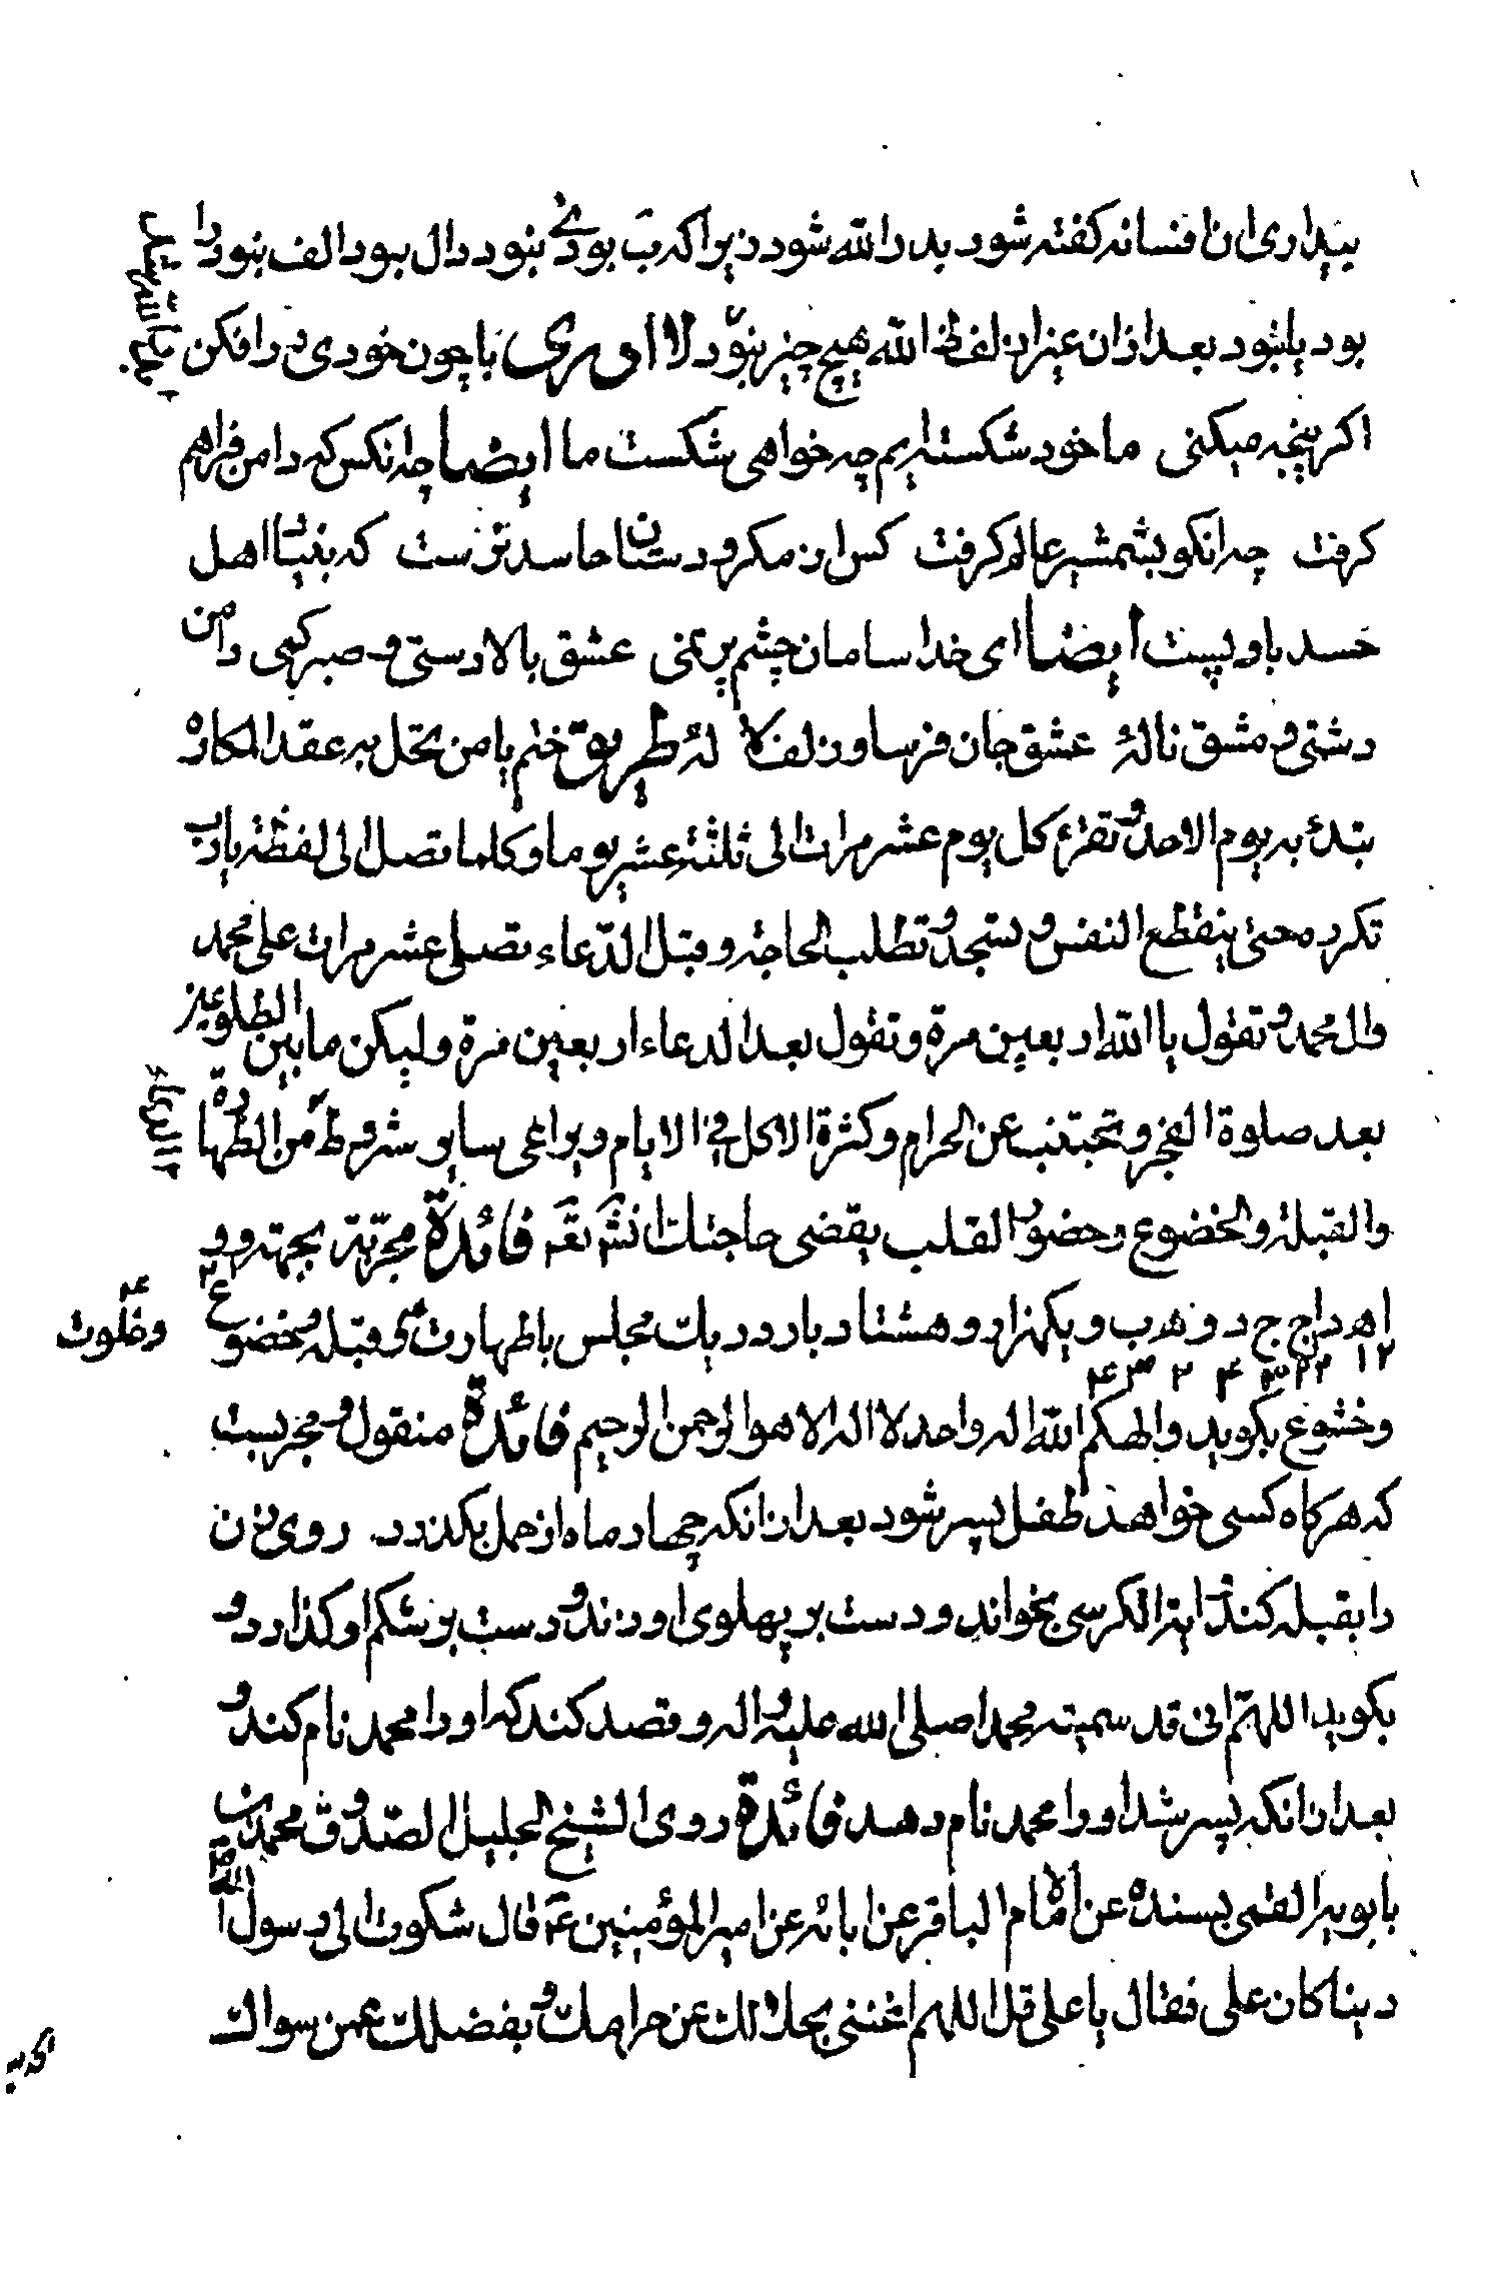 بیداری ان افسانه کفته شود بدر الله شود زیرا که ب بود نبود دال بود الف نبود را
بود یا نبود بعد از ان غیر از لفظ الله هیچ چیز نبود لا ادری با چون خودی در افکن
اکر پنجه میکنی ما خود شکسته ایم چه خواهی شکست ما ایضا چه انکس که دامن فراهم
کرفت چه انکو بشمشیر عالم کرفت کس از مکر و دستان حاسد نرست که بنیاد اهل
حسد باد پست ایضا ای خدا سامان چشم پر نمی عشق بالا دستی و صبر کمی دامن
دشتی و مشق نالهٔ عشق جان فرسا و زلف لله طریق ختم یا من تحل به عقد المکاره
بتدئ به یوم الاحد و تقرء کل یوم عشر مرات الی ثلثة عشر یوما و کلما تصل الی لفظة یارب
تکرره حتی ینقطع النفس و تسجد و تطلب الحاجة و قبل الدعاء تصلی عشر مرات علی محمد
وال محمد و تقول یا الله اربعین مرة و تقول بعد الدعاء اربعین مرة ولیکن ما بین الطلوعین
بعد صلوة الفجر و تجتنب عن الحرام و کثرة الاکل فی الایام و یراعی سایر شروطه من الطهارة
والقبلة والخضوع وحضور القلب یقضی حاجتک انش تعه فائدة مجربة بجهة
ا هـ د ا ج ج د و ه ب و یکهزار و هشتاد بار در یک مجلس با طهارت و قبله و خضوع
وخلوت
۱۲
وخشوع بکوید والهکم اله واحد لا اله الا هو الرحمن الرحیم فائدة منقول و مجربست
که هرکاه کسی خواهد طفل پسر شود بعد از انکه چهار ماه از حمل بکذرد روی زن
را بقبله کند و ایة الکرسی بخواند و دست بر پهلوی او زند و دست بر شکم او کذارد و
بکوید اللهم انی قد سمیته محمدا صلی الله علیه واله و قصد کند که او را محمد نام کند و
بعد از انکه پسر شد او را محمد نام دهد فائدة روی الشیخ الجلیل الصدوق محمد بن
بابویه القمی بسنده عن الامام الباقر عن ابائه عن امیر المؤمنین عه قال شکوت الی رسول الله
دینا کان علی فقال یا علی قل اللهم اغننی بحلالک عن حرامک و بفضلک عمن سواک